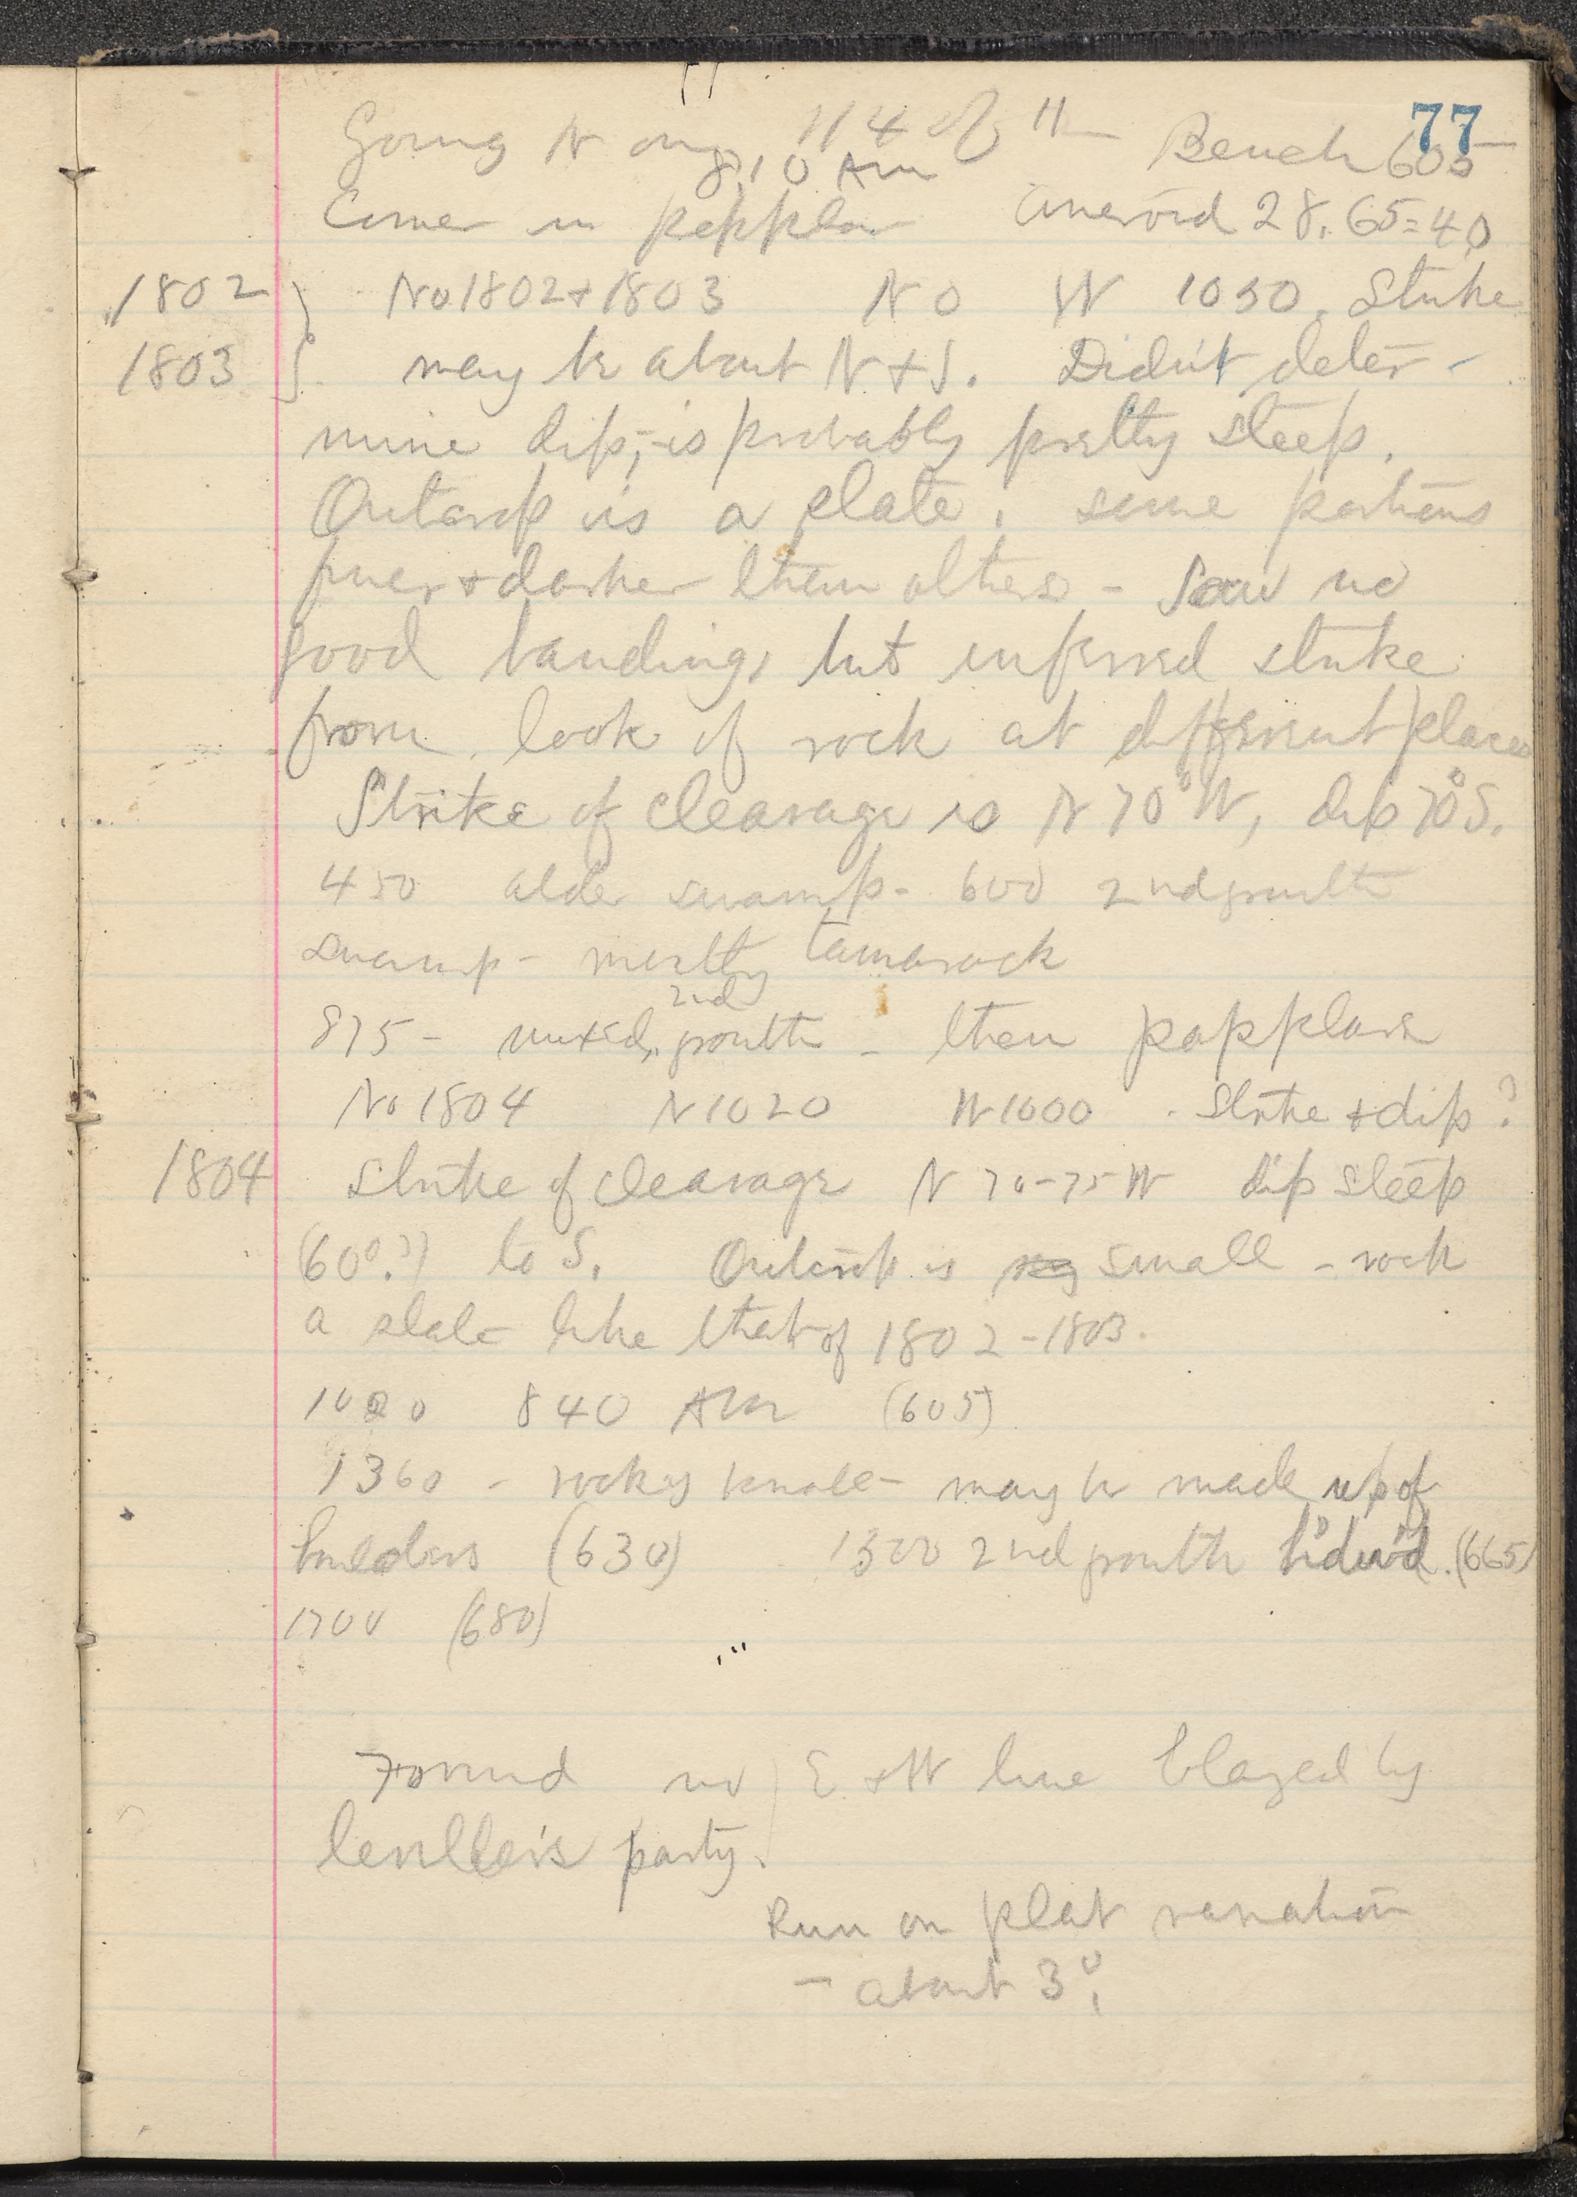 77
Going N on 1/4 of 11 Bench 605
8.10 AM
Corner in popplar Aneroid 28.65=40
1802 No 1802+1803 N 0 W 1050. Strike
1803 may be about N+S. Didn't deter-
mine dip,-is probably pretty steep.
Outcrop is a slate, some portions
finer + darker than others - Saw no
good banding, but inferred strike
from look of rock at different places
Strike of cleavage is N 70° W, dip 70° S.
450 alder swamp - 600 2nd growth
swamp - mostly tamarack
2nd
875 - mixed, growth - then popplars
No 1804 N 1020 W 1000. Strike + dip?
1804 Strike of cleavage N 70-75 W dip steep
(60°?) to S. Outcrop is small - rock
a slate like that of 1802-1803.
1020 840 AM (605)
1360 - rocky knoll - may be made up of
boulders (630) 1500 2nd growth h'dw'd. (665)
1700 (680)
Found no E + W line blazed by
party.
Run on plat variation
- about 3°.